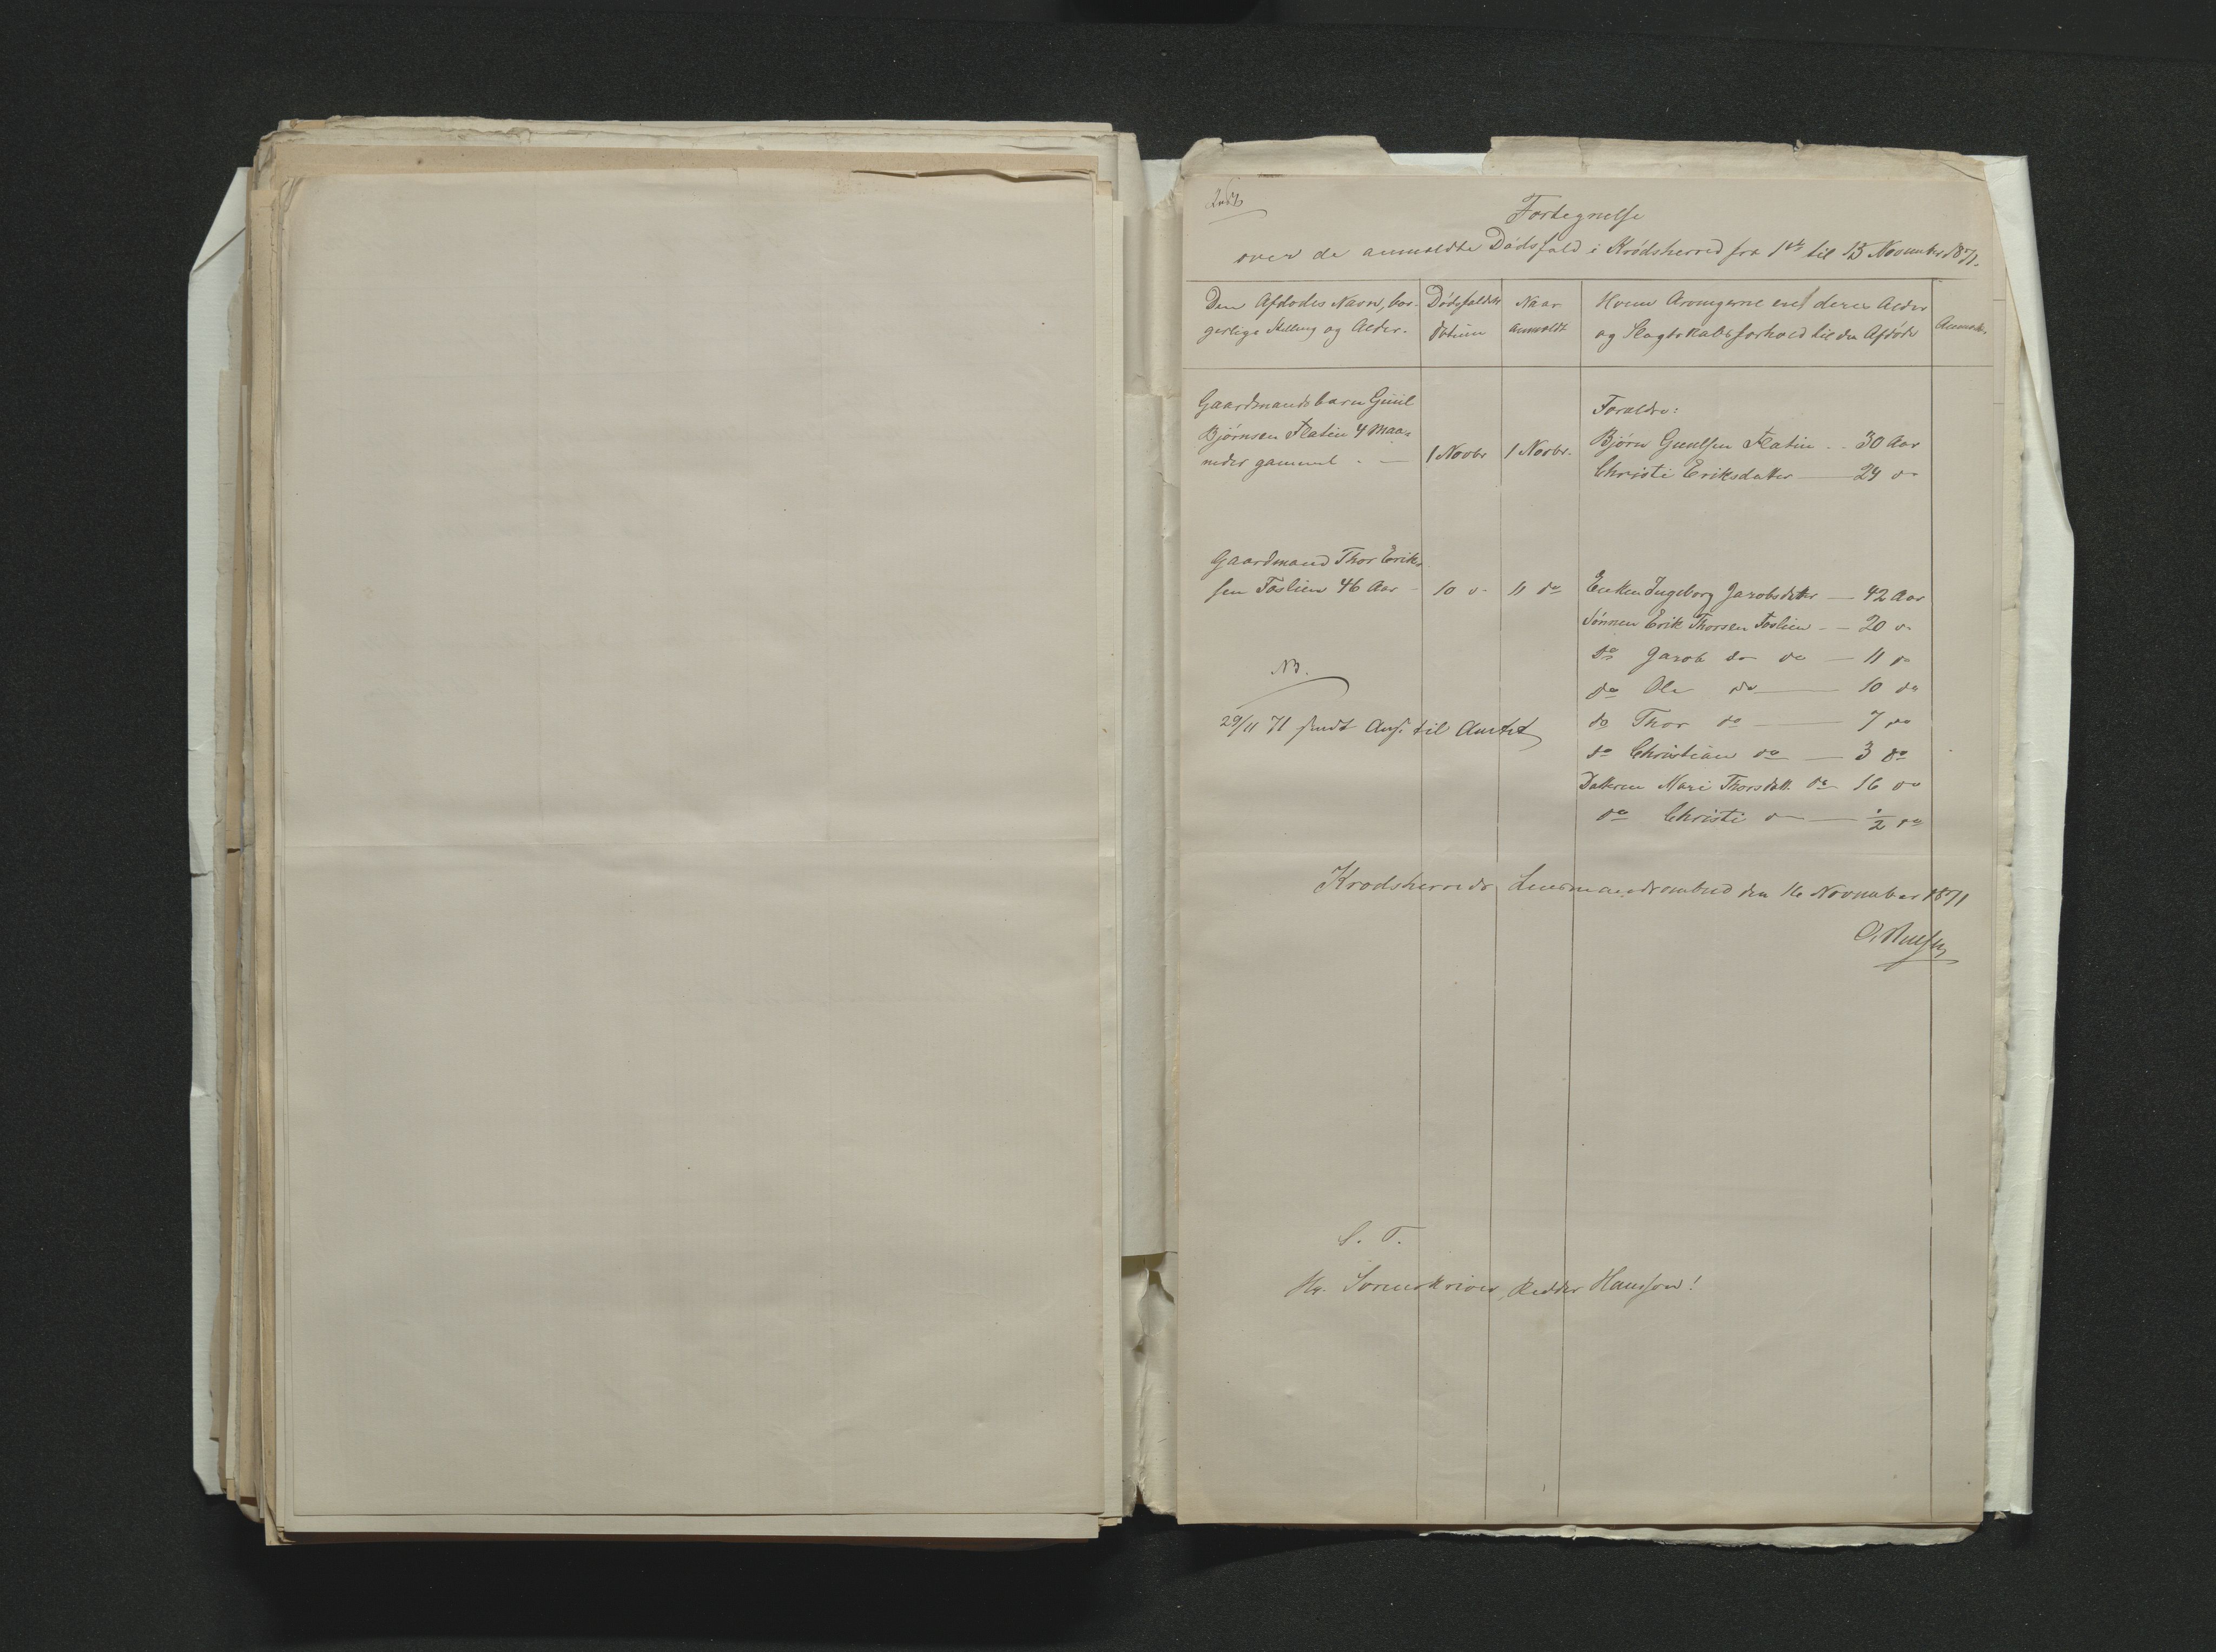 Fortegnelse
over de anmeldte Dødsfald i Krødsherred fra 1ste til 15 November 1871.
Den Afdødes Navn, bor-
gerlige Stilling og Alder.
Dødsfaldets
datum
Naar
anmeldt
Hvem Arvingerne ere, deres Alder
og Slægtskabsforhold til den Afdøde
Anmærk.
Gaardmandsbarn Guul
Bjørnsen Flatin 4 Maa-
neder gammel . —
1 Novbr
1 Novbr.
Forældre:
Bjørn Guulsen Flatin .. 30 Aar
Christi Eriksdatter — 24 do
Gaardmand Thor Erik-
sen Foslien 46 Aar -
10 do
11 do
Enken Ingeborg Jacobsdatter — 42 Aar
Sønnen Erik Thorsen Foslien — 20 do
do Jacob do do — 11 do
do Ole do — 10 do
do Thor do — 7 do
do Christian do — 3 do
Datteren Mari Thorsdatt. do 16 do
do Christi do — ½ do
NB.
29/11 71 sendt til Amtet
Krødsherreds Lensmandsombud den 16 November 1871
S. T.
Hr. Sorenskriver, Ridder Hansson!